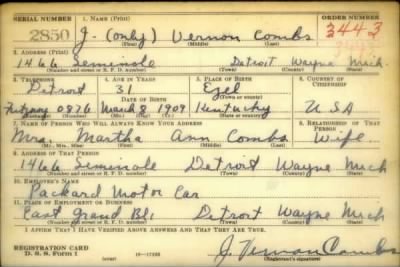 SERIAL NUMBER 1. NAME (Print) ORDER NUMBER
2850 J. (only) Vernon Combs 3443
(First) (Middle) (Last)
2. ADDRESS (Print)
1466 Seminole Detroit Wayne Mich
(Number and street or R. F. D. number) (Town) (County) (State)
3. TELEPHONE 4. AGE IN YEARS 5. PLACE OF BIRTH 6. COUNTRY OF CITIZENSHIP
Detroit 31 Ezel
DATE OF BIRTH
0876 March 8 1909 Kentucky USA
7. NAME OF PERSON WHO WILL ALWAYS KNOW YOUR ADDRESS 8. RELATIONSHIP OF THAT PERSON
Mrs Martha Ann Combs Wife
9. ADDRESS OF THAT PERSON
1466 Seminole Detroit Wayne Mich
(Number and street or R. F. D. number) (Town) (County) (State)
10. EMPLOYER'S NAME
Packard Motor Car
11. PLACE OF EMPLOYMENT OR BUSINESS
East Grand Bl. Detroit Wayne Mich
(Number and street or R. F. D. number) (Town) (County) (State)
I AFFIRM THAT I HAVE VERIFIED ABOVE ANSWERS AND THAT THEY ARE TRUE.
REGISTRATION CARD
D. S. S. Form 1
J. Vernon Combs
(Registrant's signature)